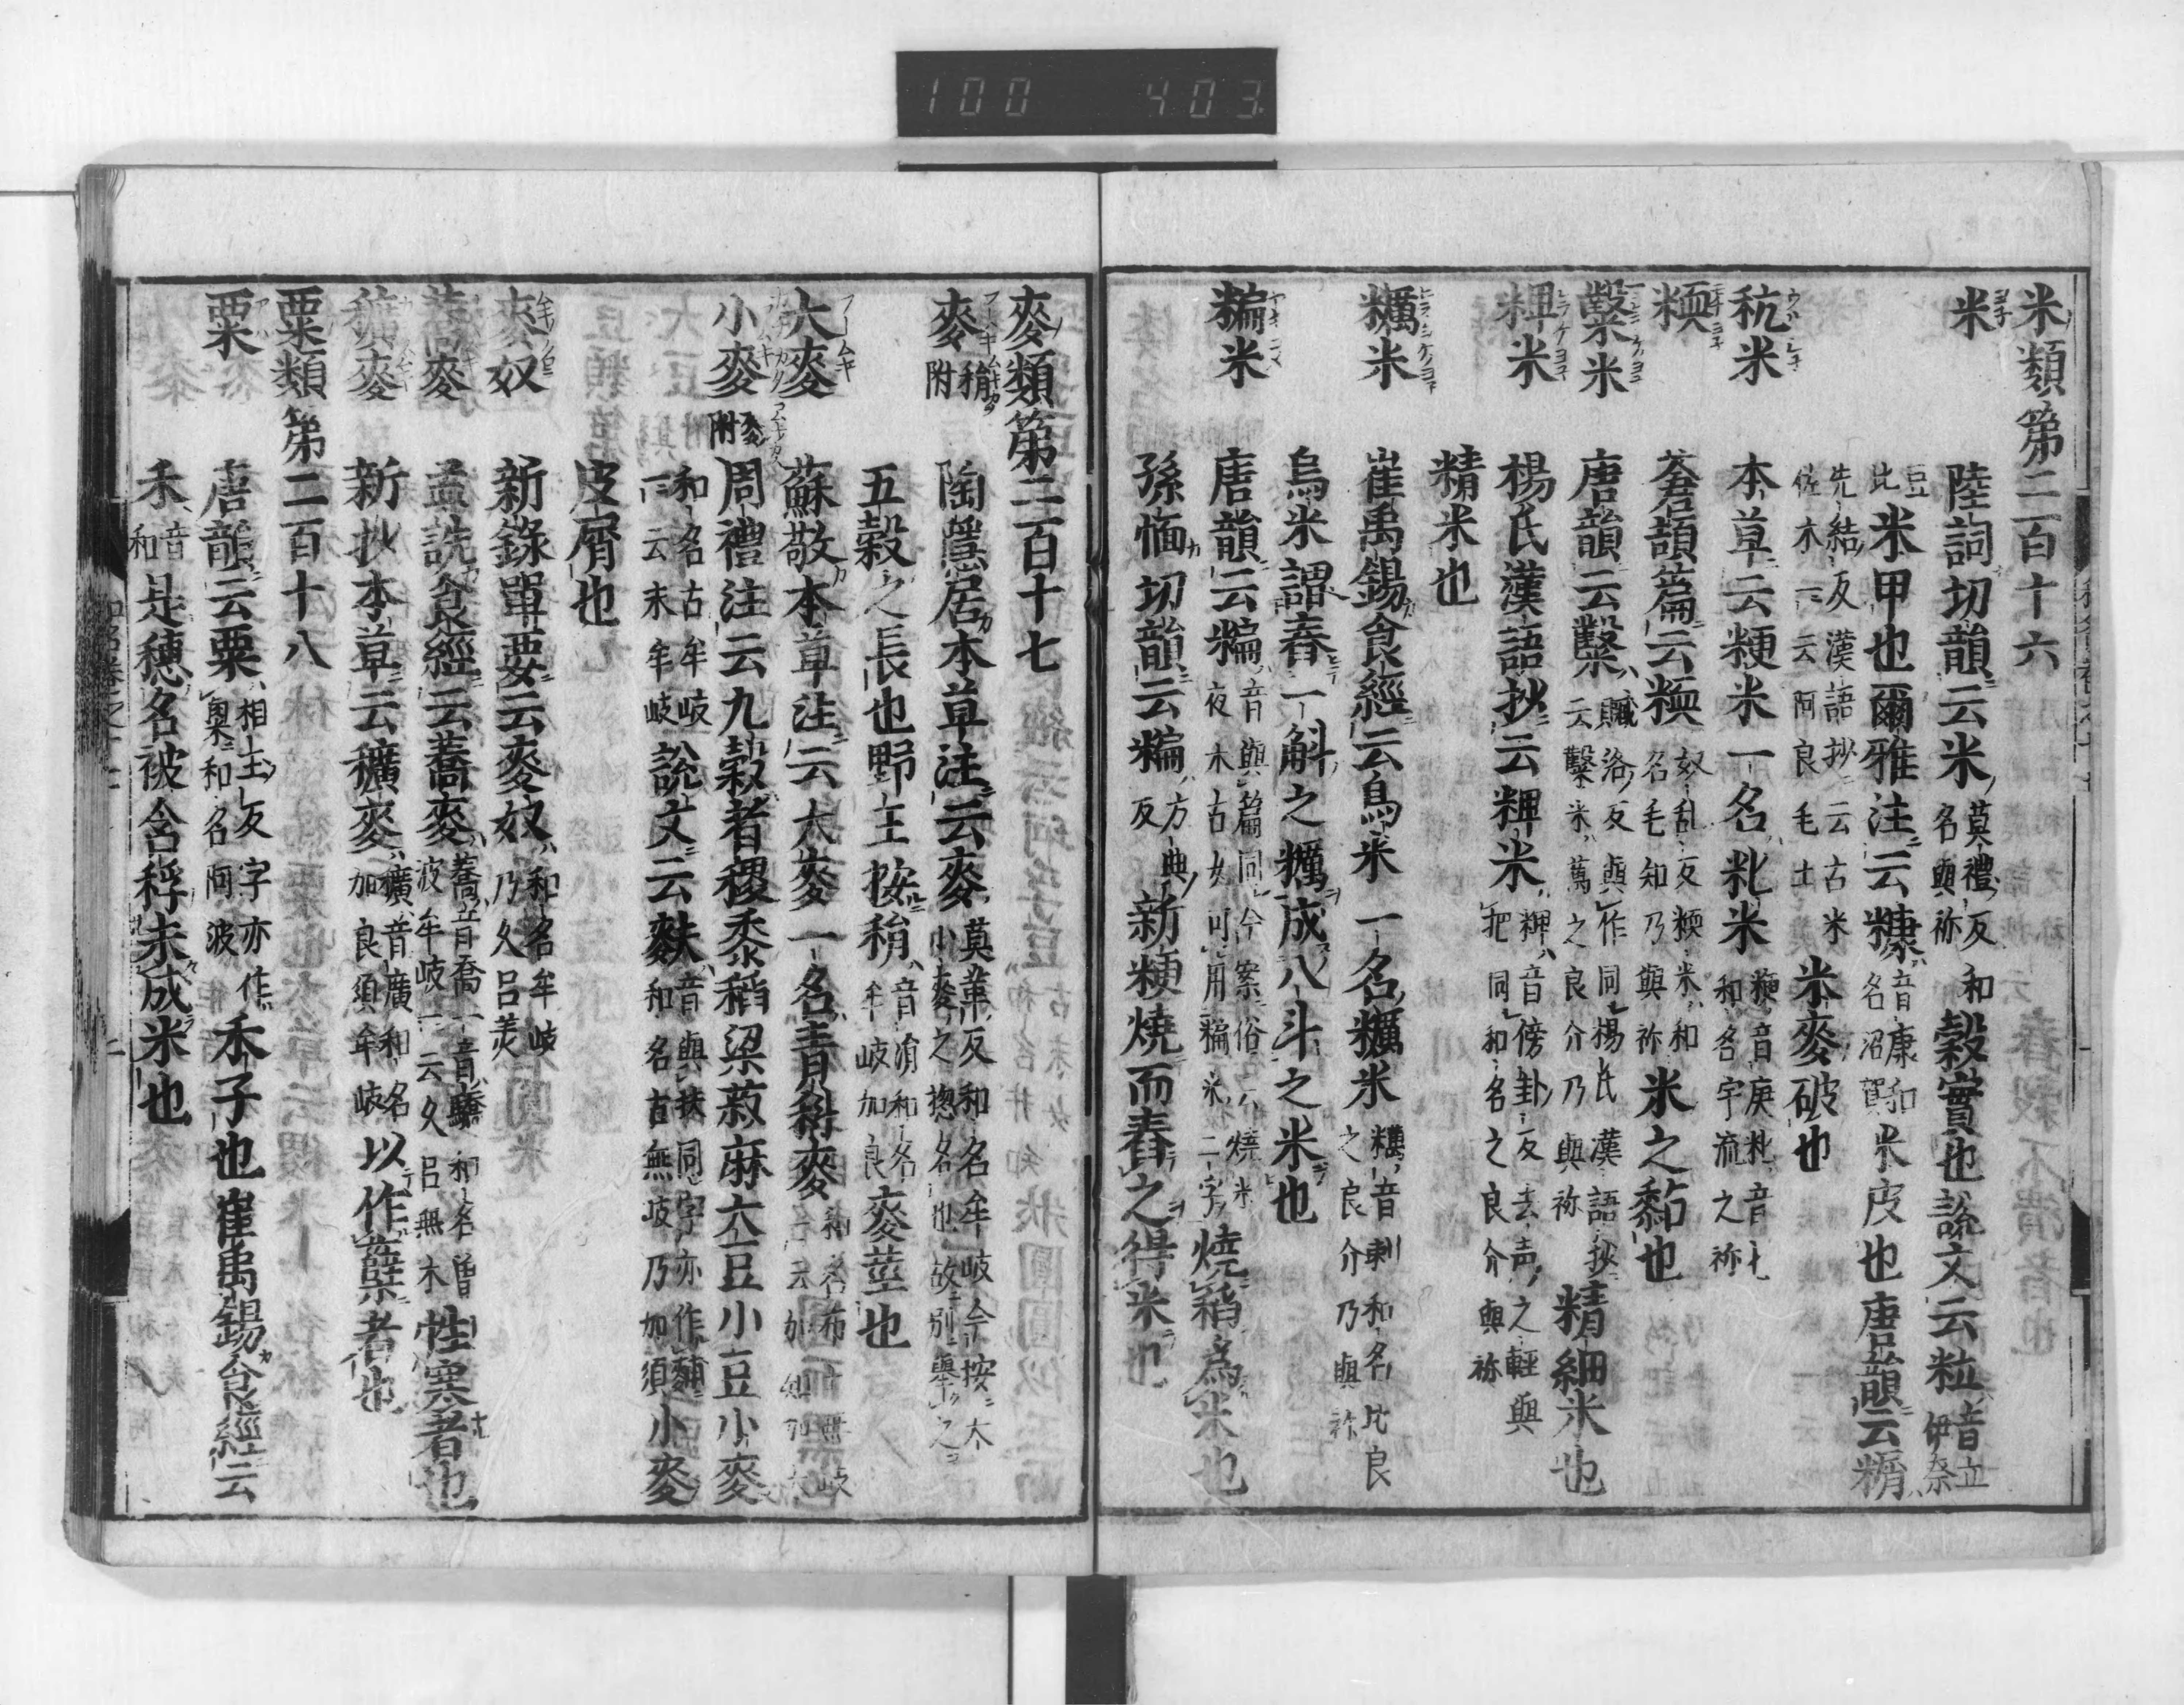 100 403
米類第二百十六
米 陸詞切韻云米莫禮反和名與祢穀實也說文云粒音立伊奈
豆比米甲也爾雅注云糠音康和名沼賀米皮也唐韻云糏
先結反漢語抄云古米佐木一云阿良毛土米麥破也
秔米 本草云粳米一名籼米粳音庚和名宇流之祢
糯 蒼頡篇云糯奴乱反糯米和名毛知乃與祢米之黏也
糳米 唐韻云糳臧洛反與作同楊氏漢語抄云糳米萬之良介乃與祢精細米也
粺米 楊氏漢語抄云粺米粺音傍卦反去声之輕與把同和名之良介與祢
精米也
糲米 崔禹錫食經云烏米一名糲米糲音剌和名比良之良介乃與祢
烏米謂舂一斛之糲成八斗之米也
糄米 唐韻云糄音與篇同今案俗云燒米夜木古女可用糄米二字燒稻為米也
孫愐切韻云糄方典反新粳燒而舂之得米也
麥類第二百十七
麥䅌附 陶隱居本草注云麥莫革反和名牟岐今按大小麥之惣名也故別舉之
五穀之長也野王按䅌音涓和名牟岐加良麥莖也
大麥 蘇敬本草注云大麥一名青科麥和名布土無岐一云加知加太
小麥麩附 周禮注云九穀者稷黍稻粱菽麻大豆小豆小麥
和名古牟岐一云末牟岐說文云麩音與扶同字亦作䴸和名古無岐乃加須小麥
皮屑也
麥奴 新錄單要云麥奴和名牟岐乃久呂美
蕎麥 孟詵食經云蕎麥蕎音喬一音驕和名曾波牟岐一云久呂無木性寒者也
穬麥 新抄本草云穬麥穬音廣和名加良須牟岐以作蘖者也
粟類第二百十八
粟 唐韻云粟相玉反字亦作㮚和名阿波禾子也崔禹錫食經云
禾音和是穗名被含稃未成米也